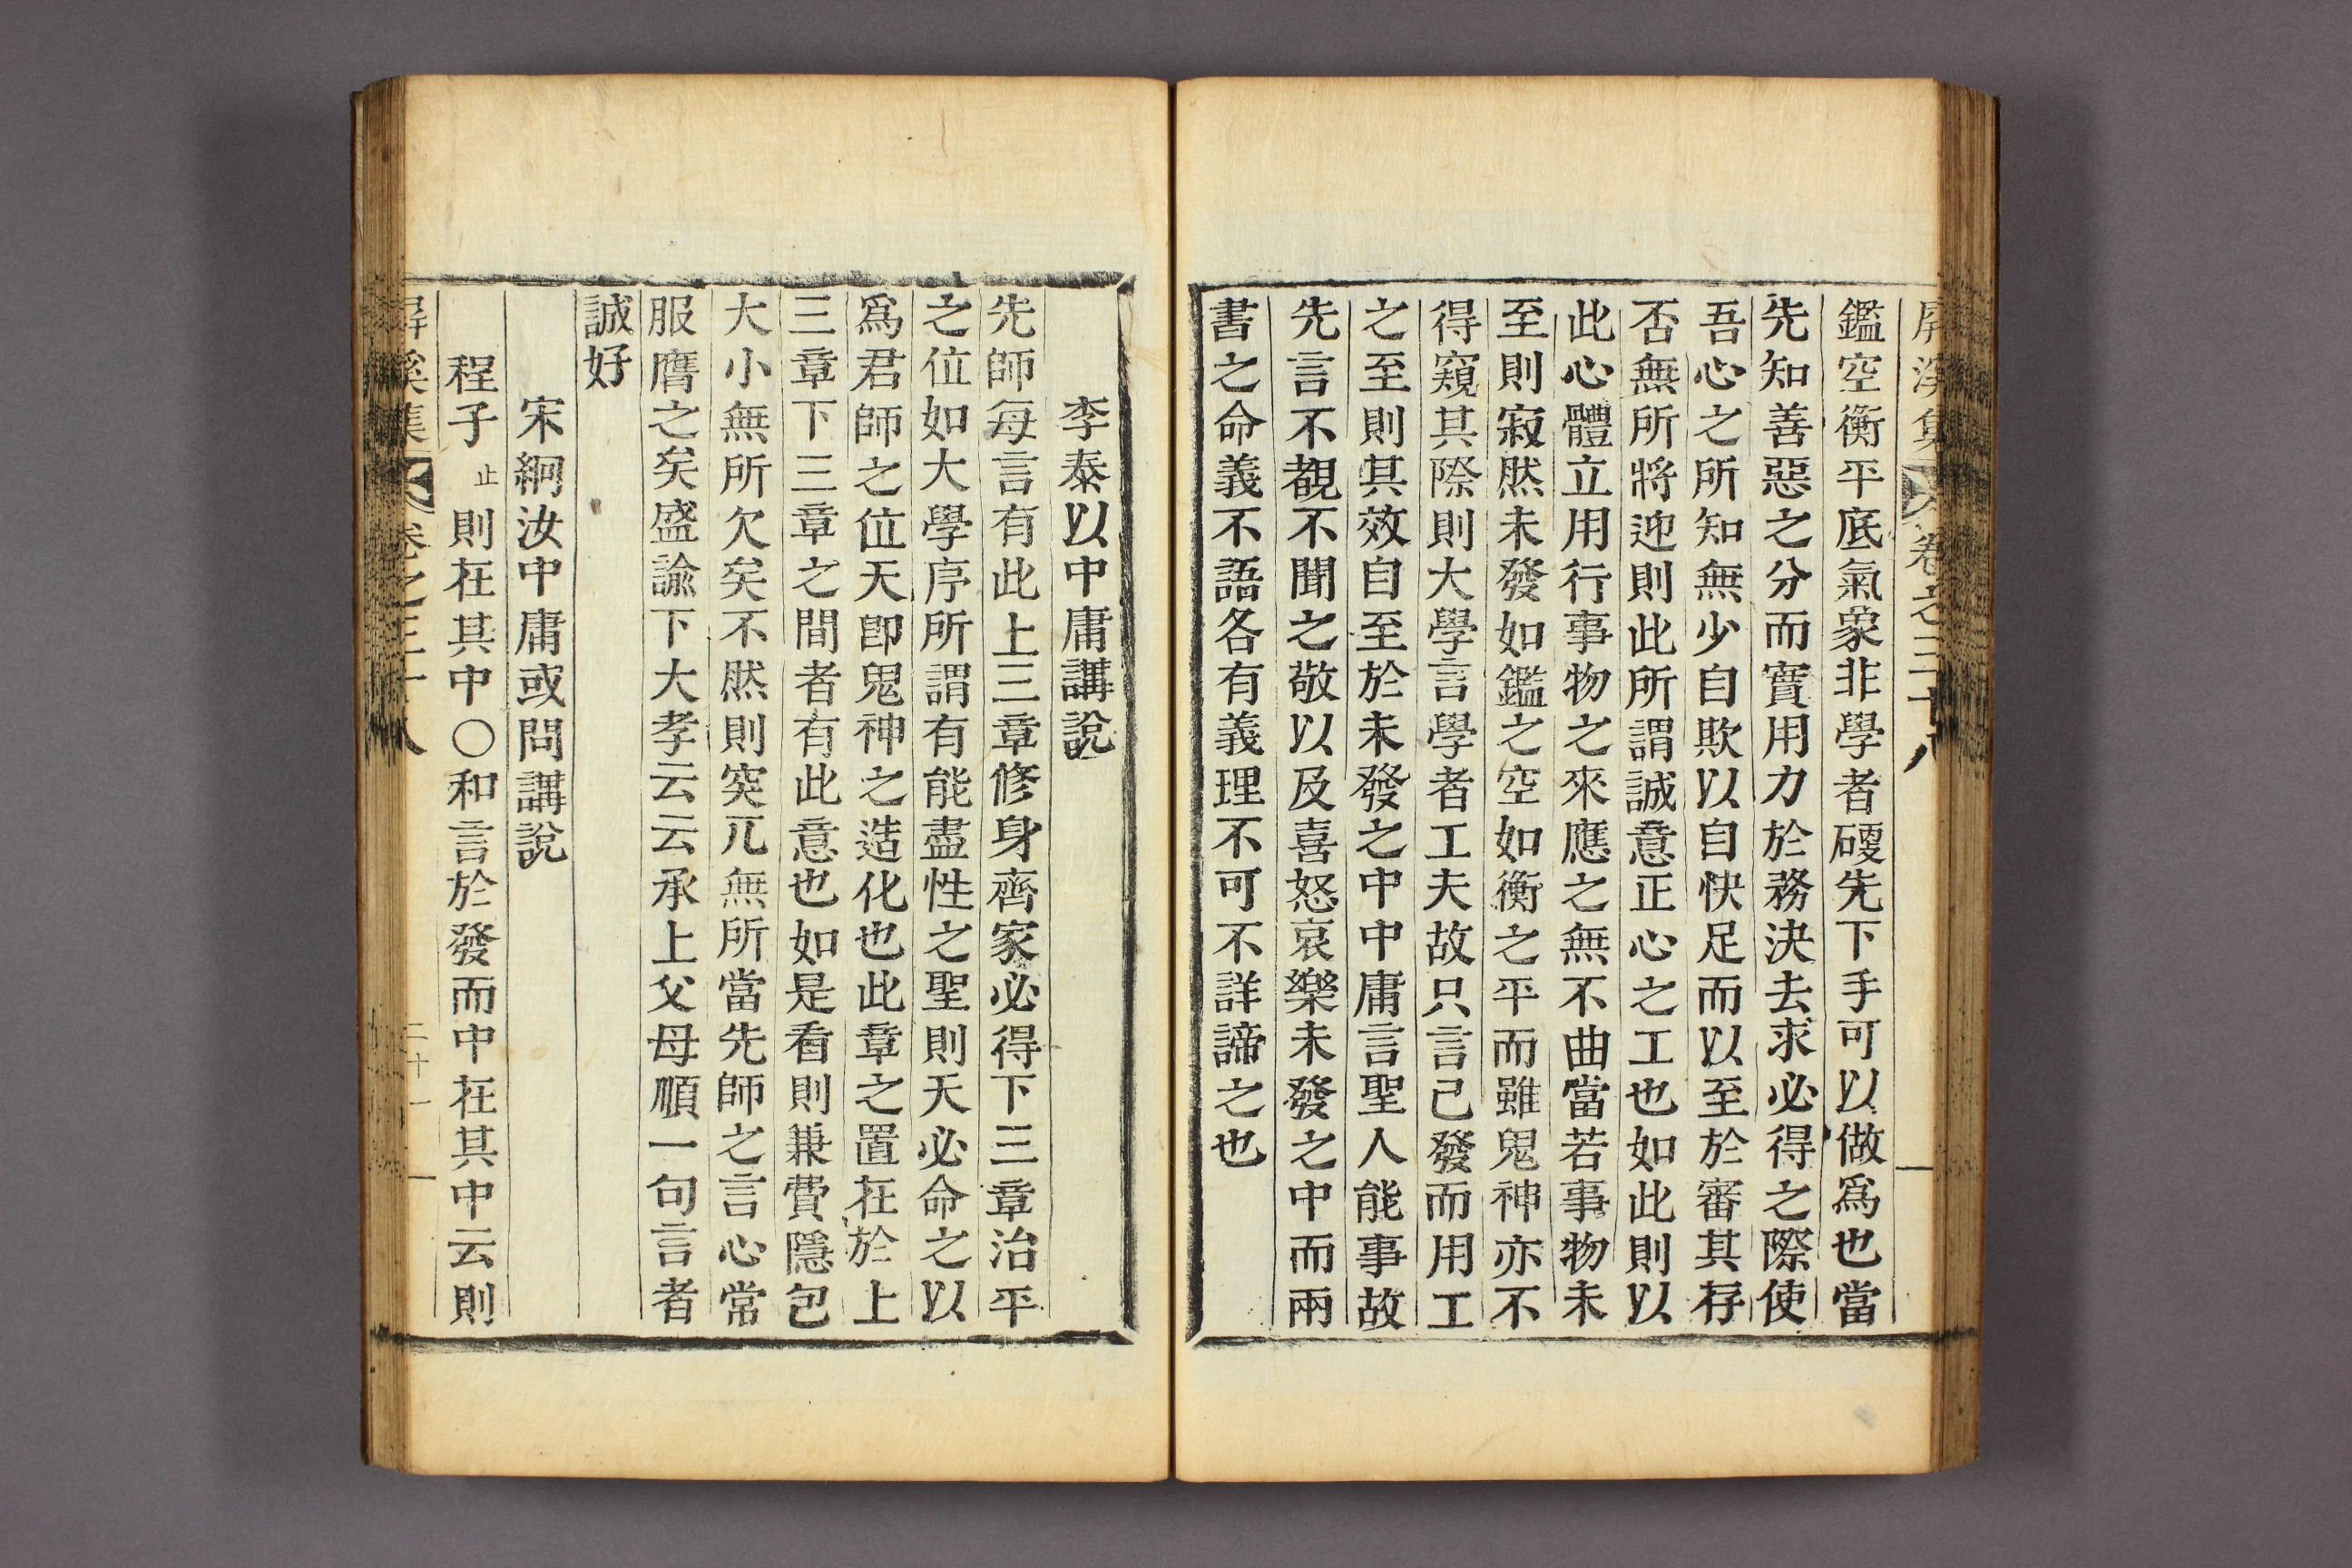 屏溪集 卷之三十八
鑑空衡平底氣象非學者硬先下手可以做爲也當
先知善惡之分而實用力於務決去求必得之際使
吾心之所知無少自欺以自快足而以至於審其存
否無所將迎則此所謂誠意正心之工也如此則以
此心體立用行事物之來應之無不曲當若事物未
至則寂然未發如鑑之空如衡之平而雖鬼神亦不
得窺其際則大學言學者工夫故只言已發而用工
之至則其效自至於未發之中中庸言聖人能事故
先言不覩不聞之敬以及喜怒哀樂未發之中而兩
書之命義不語各有義理不可不詳諦之也
李泰以中庸講說
先師每言有此上三章修身齊家必得下三章治平
之位如大學序所謂有能盡性之聖則天必命之以
爲君師之位天卽鬼神之造化也此章之置在於上
三章下三章之間者有此意也如是看則兼費隱包
大小無所欠矣不然則突兀無所當先師之言心常
服膺之矣盛諭下大孝云云承上父母順一句言者
誠好
宋綱汝中庸或問講說
程子止則在其中○和言於發而中在其中云則
屏溪集 卷之三十八 二十一